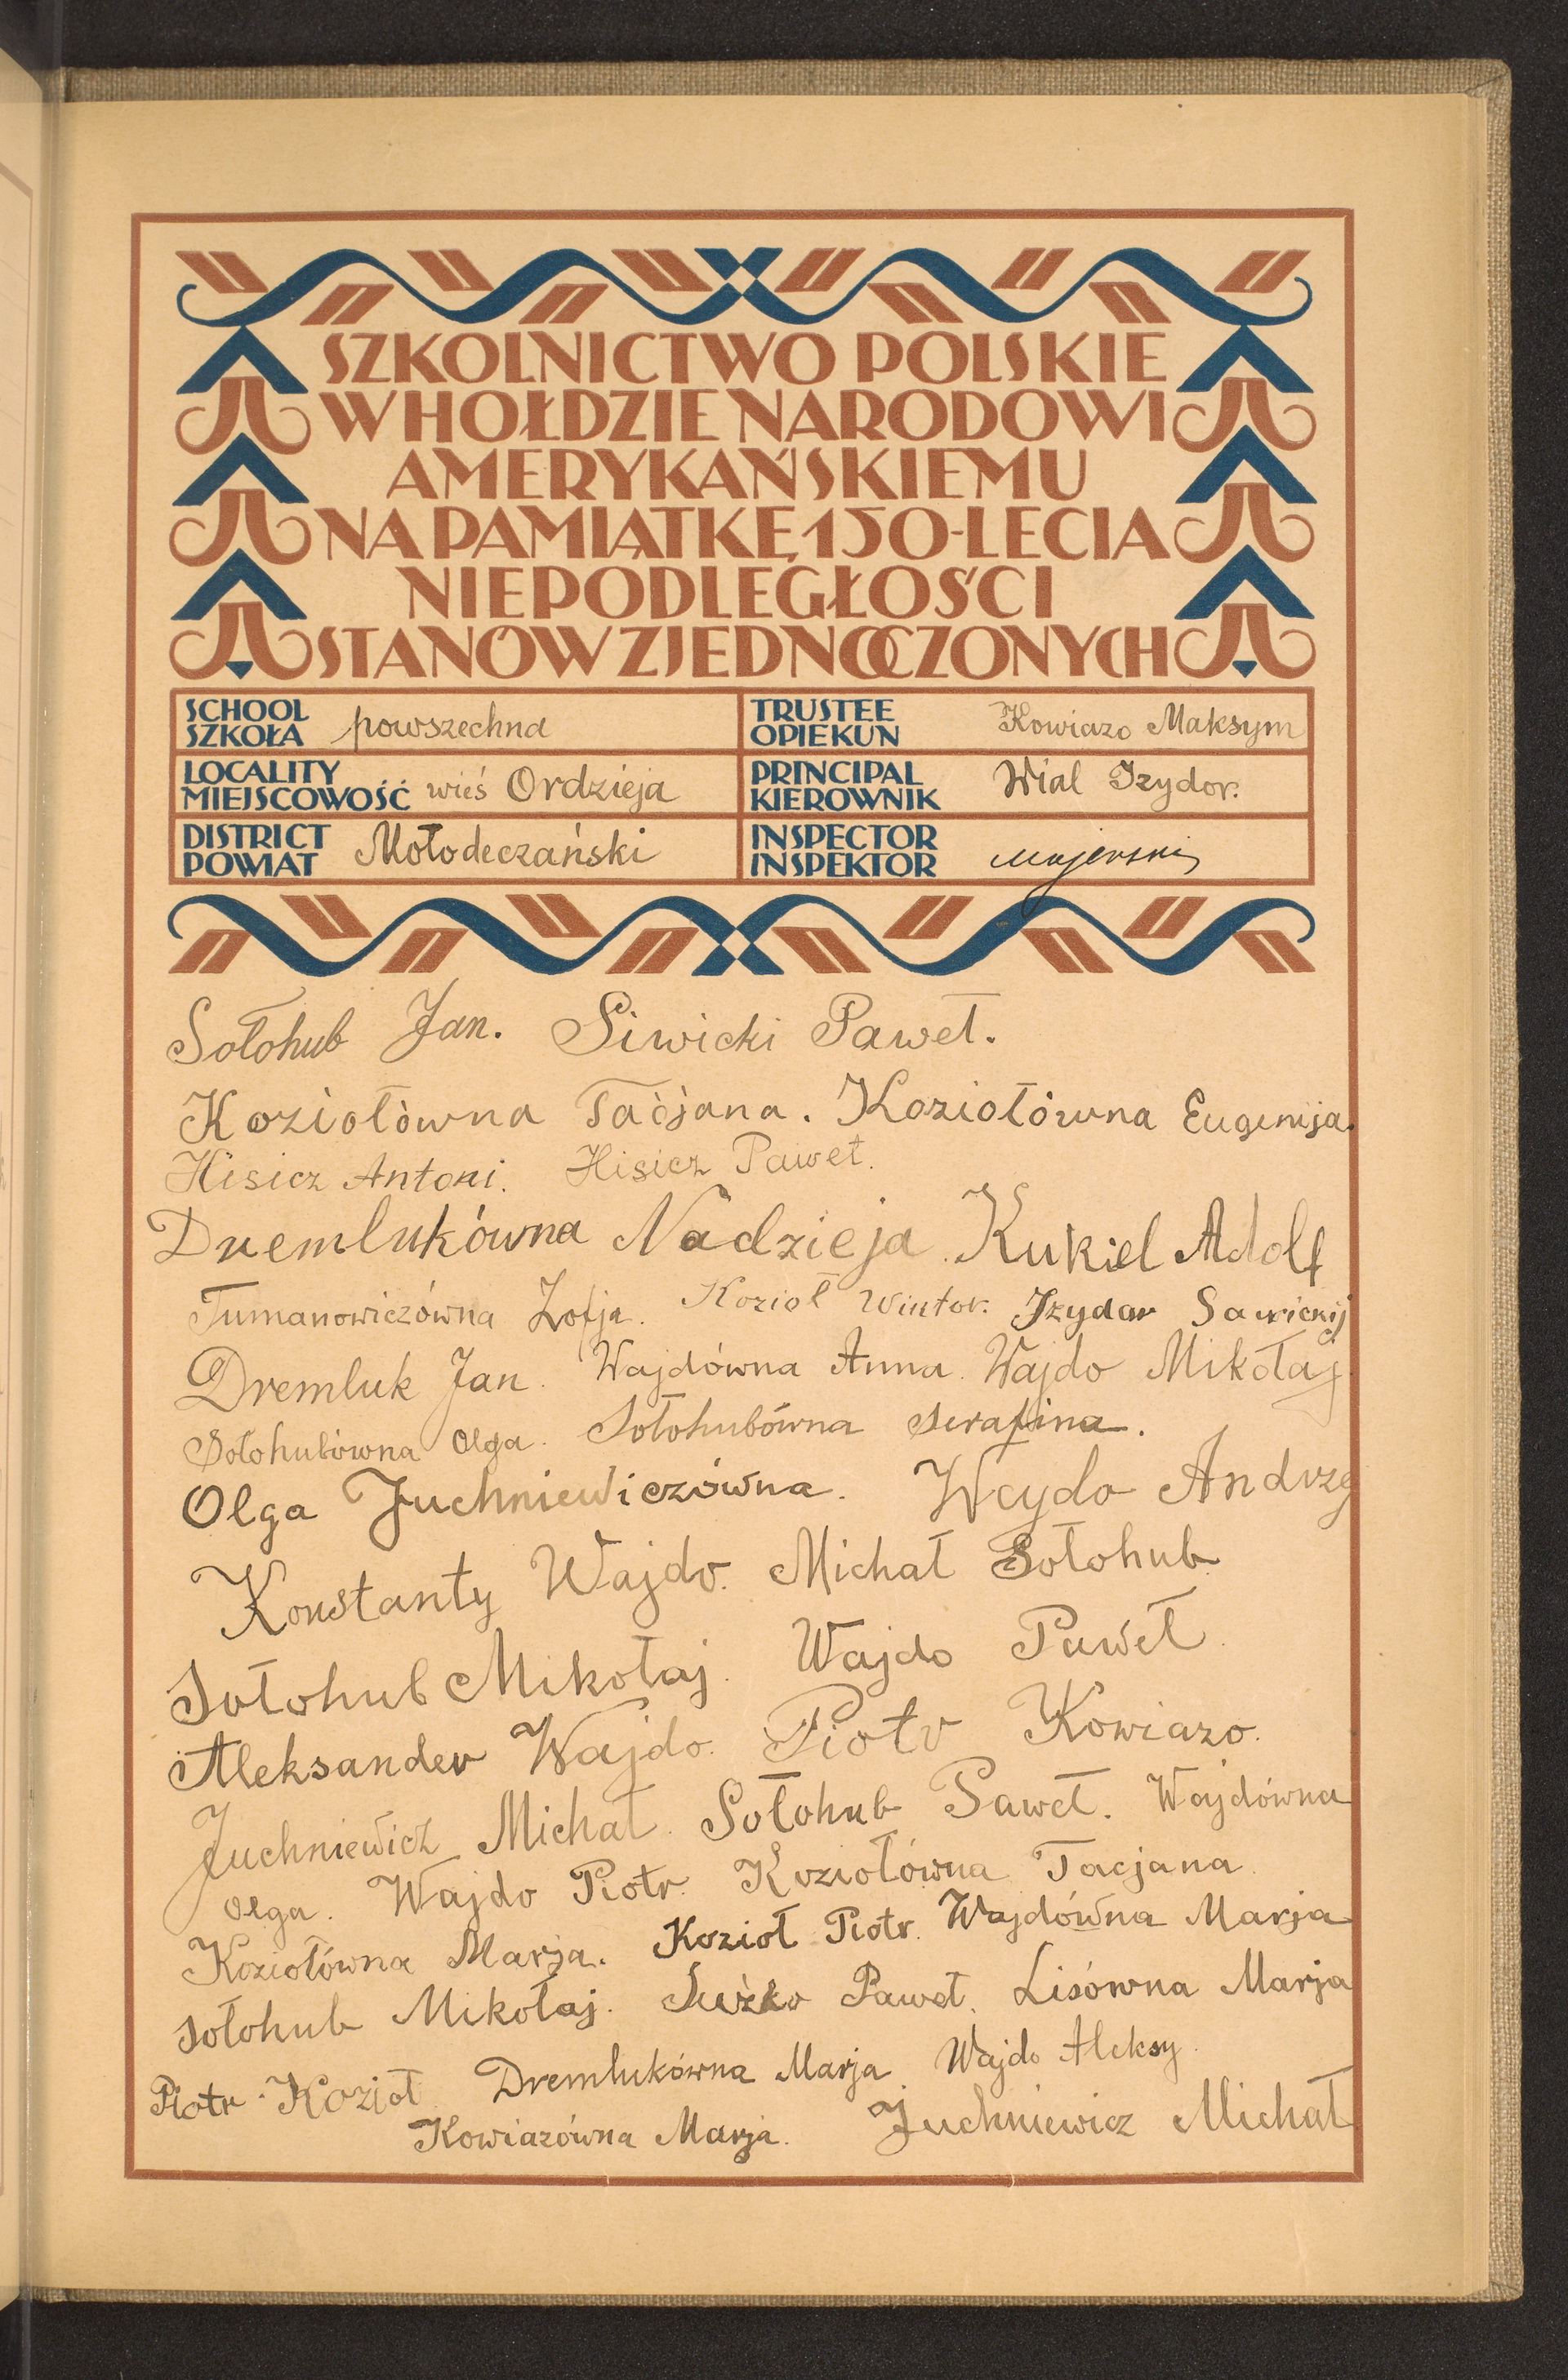 SZKOLNICTWO POLSKIE
W HOŁDZIE NARODOWI
AMERYKAŃSKIEMU
NA PAMIĄTKĘ 150-LECIA
NIEPODLEGŁOŚCI
STANÓW ZJEDNOCZONYCH
SCHOOL
SZKOŁA powszechna
TRUSTEE
OPIEKUN Kowiazo Maksym
LOCALITY
MIEJSCOWOŚĆ wieś Ordzieja
PRINCIPAL
KIEROWNIK Wial Izydor.
DISTRICT
POWIAT Mołodeczański
INSPECTOR
INSPEKTOR Majerski
Sołohub Jan. Siwicki Paweł.
Koziołówna Tacjana. Koziołówna Eugenija.
Hisicz Antoni. Hisicz Paweł.
Dremlukówna Nadzieja. Kukiel Adolf
Tumanowiczówna Zofja. Kozioł Wintor. Izydor Sawickij
Dremluk Jan. Wajdówna Anna. Wajdo Mikołaj
Sołohubówna Olga. Sołohubówna Serafina.
Olga Juchniewiczówna. Wajdo Andrzej
Konstanty Wajdo. Michał Sołohub.
Sołohub Mikołaj. Wajdo Paweł.
Aleksander Wajdo. Piotr Kowiazo.
Juchniewicz Michał. Sołohub Paweł. Wajdówna
Olga. Wajdo Piotr. Koziołówna Tacjana.
Koziołówna Marja. Kozioł Piotr. Wajdówna Marja
Sołohub Mikołaj. Paweł. Lisówna Marja
Piotr Kozioł. Dremlukówna Marja. Wajdo Aleksy.
Kowiazówna Marja. Juchniewicz Michał